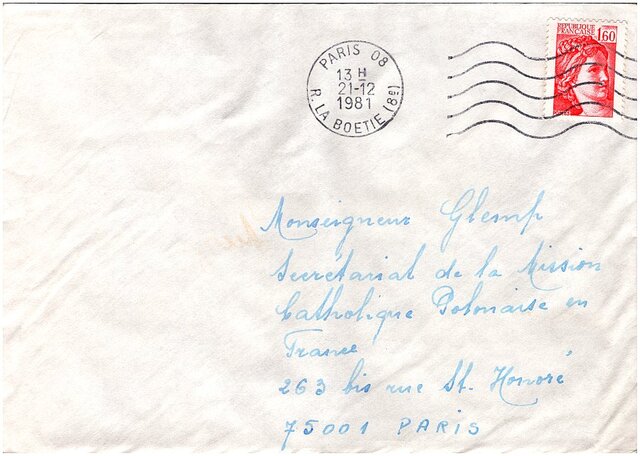 REPUBLIQUE
FRANÇAISE
1,60
PARIS 08
13 H
21-12
1981
R. LA BOETIE (8e)
Monseigneur Glemp
Secrétariat de la Mission
Catholique Polonaise en
France
263 bis rue St. Honoré
75001 PARIS